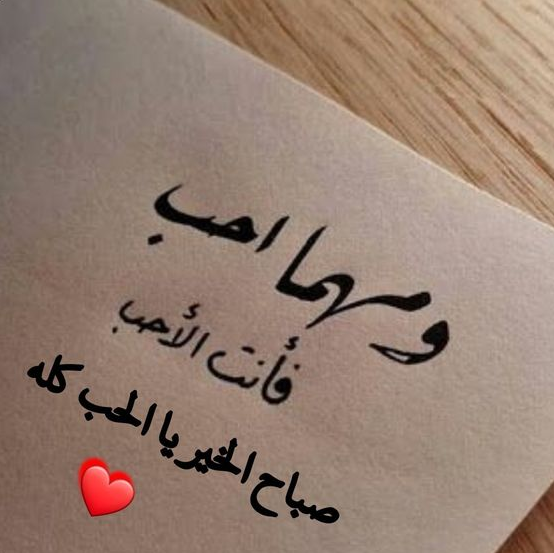 ومهما احب
فأنت الأحب
صباح الخير يا الحب كله